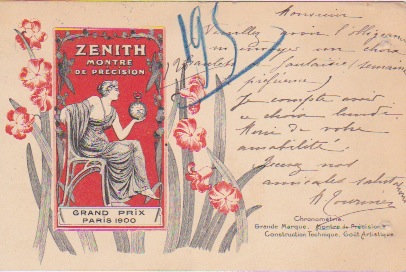 ZENITH
MONTRE
DE PRÉCISION
GRAND PRIX
PARIS 1900
195
Monsieur
Veuillez avoir l'obligeance
un choix
fantaisie
Je compte avoir
ce choix lundi
Merci de votre
amabilité.
Recevez nos
amicales salut
Chronométrie
Grande Marque. Montre de Précision
Construction Technique, Goût Artistique.